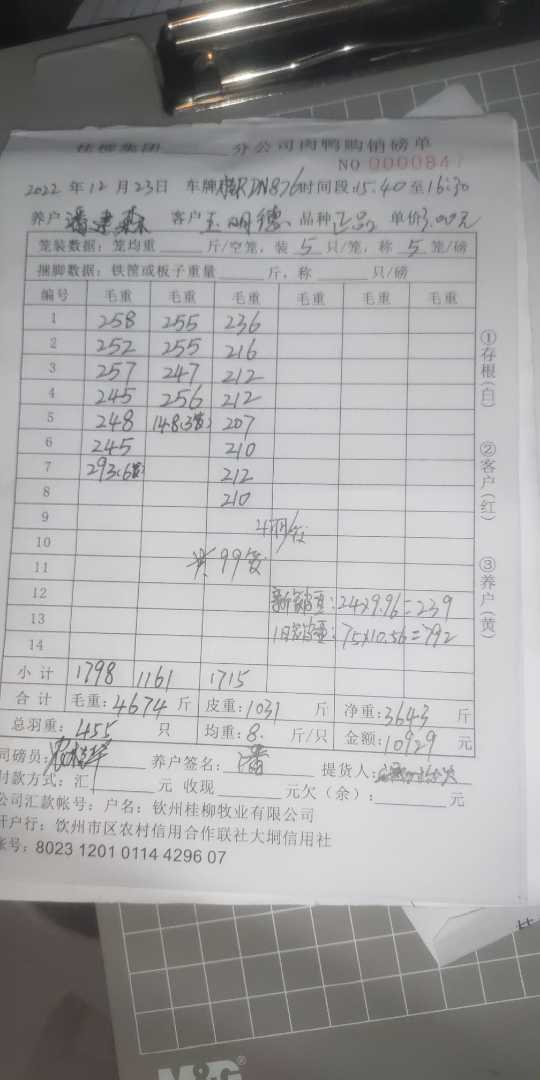 桂柳集团 分公司肉鸭购销磅单
NO 0000847
2022 年 12 月 23 日 车牌 桂RDN876 时间段:15.40 至 16:30
养户 潘建森 客户 王明德 品种 正品 单价 3.00元
笼装数据：笼均重 斤/空笼，装 5 只/笼，称 5 笼/磅
捆脚数据：铁筐或板子重量 斤，称 只/磅
编号 毛重 毛重 毛重 毛重 毛重 毛重
1 258 255 236
2 252 255 216
3 257 247 212
4 245 256 212
5 248 148(3笼) 207
6 245 210
7 293(6笼) 212
8 210
9
10
11 共99笼
12 新笼重:24×9.96=239
13 旧笼重:75×10.56=792
14
小计 1798 1161 1715
合计 毛重:4674 斤 皮重:1031 斤 净重:3643 斤
总羽重:455 只 均重:8. 斤/只 金额:10929 元
司磅员: 养户签名: 潘 提货人:
付款方式：汇 元 收现 元欠（余）: 元
公司汇款帐号：户名：钦州桂柳牧业有限公司
开户行：饮州市区农村信用合作联社大垌信用社
帐号：8023 1201 0114 4296 07
①存根(白)
②客户(红)
③养户(黄)
M&G